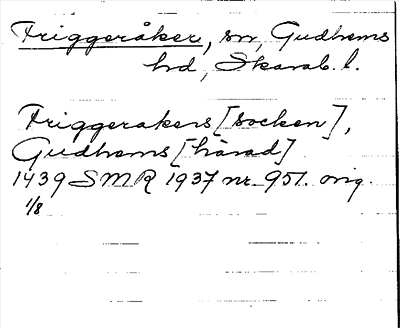 Friggeråker, sn, Gudhems
hd, Skarab. l.
Friggerakers [socken],
Gudhems [härad]
1439 SMR 1937 nr. 951. orig.
1/8